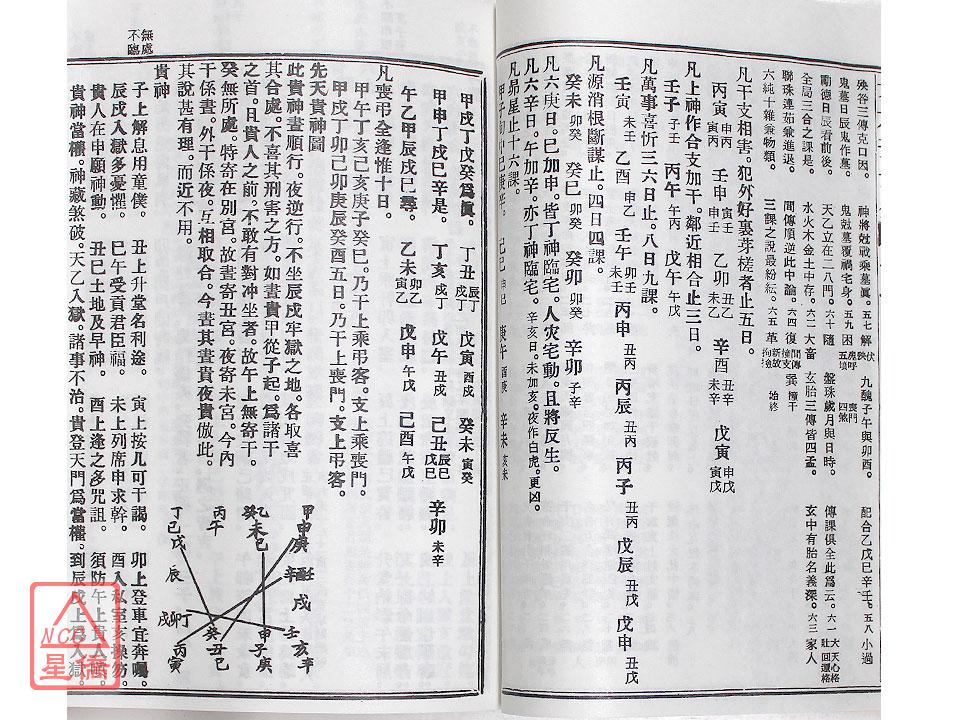 殃咎三傳克口因。 神將尅戰乘墓眞。五七解
鬼墓日辰鬼作墓。 鬼尅墓覆禍宅身。五九困
勵德日辰看前後。 天乙立在二八門。六十隨
全局三合之課是。 水火木金土中存。六二大畜
聯珠連茹兼進退。 間傳順逆此中論。六四復
六純十雜兼物類。 三課之說最紛紜。六五革
九醜子午與卯酉。 配合乙戊己辛壬。五八小過
盤珠歲月與日時。 傳課俱全此爲云。六一
玄胎三傳皆四孟。 玄中有胎名義深。六三家人
凡干支相害。犯外好裏芽槎者止五日。
丙寅 申丙 寅丙 壬申 寅壬 申壬 乙卯 丑乙 未乙 辛酉 丑辛 未辛 戊寅 申戊 寅戊
凡上神作合支加干。鄰近相合止三日。
壬子 子壬 丙午 午丙 戊午 午戊
凡萬事喜忻三六日止。八日九課。
壬寅 未壬 乙酉 申乙 壬午 卯壬 丙申 丑丙 丙辰 丑丙 丙子 丑丙 戊辰 丑戊 戊申 丑戊
凡源消根斷謀止。四日四課。
癸未 卯癸 癸巳 卯癸 癸卯 卯癸 辛卯 子辛
凡六庚日。巳加申。皆丁神臨宅。人灾宅動。且將反生。
凡六辛日。午加辛。亦丁神臨宅。辛亥日。未加亥。夜作白虎。更凶。
凡昴星止十六課。
無處不臨
甲戌丁戊癸爲眞。 丁丑 辰丁 戌丁 戊寅 酉戊 癸未 寅癸
甲申丁戌己辛是。 丁亥 戌丁 戊午 午戊 己丑 辰己 戊己 辛卯 未辛
午乙甲辰戌巳尋。 乙未 未乙 寅乙 戊申 午戊 己酉 午戊
凡喪弔全逢惟十日。
甲午丁亥己亥庚子癸巳。乃干上乘弔客。支上乘喪門。
甲戌丁卯己卯庚辰癸酉五日。乃干上喪門。支上弔客。
先天貴神圖
此貴神晝順行。夜逆行。不坐辰戌牢獄之地。各取喜
其合處。不喜其刑害之方。如晝貴甲從子起。爲諸干
之首。且貴人之前。不敢有對冲坐者。故午上無寄干。
癸無所處。特寄在別宮。故晝寄丑宮。夜寄未宮。今內
干係晝。外干係夜。互相取合。今晝其晝貴夜貴倣此。
其說甚有理。而近不用。
貴神
子上解息用童僕。 丑上升堂名利途。 寅上按几可干謁。 卯上登車宜奔囑。
辰戌入獄多憂懼。 巳午受貢君臣福。 未上列席申求幹。 酉入私室亥操笏。
貴人在申願神動。 丑巳土地及早神。 酉上逢之多咒詛。 須防午上貴人嗔。
貴神當權。神藏煞破。天乙入獄。諸事不治。貴登天門爲當權。到辰戌上爲入獄。
NCC
星僑